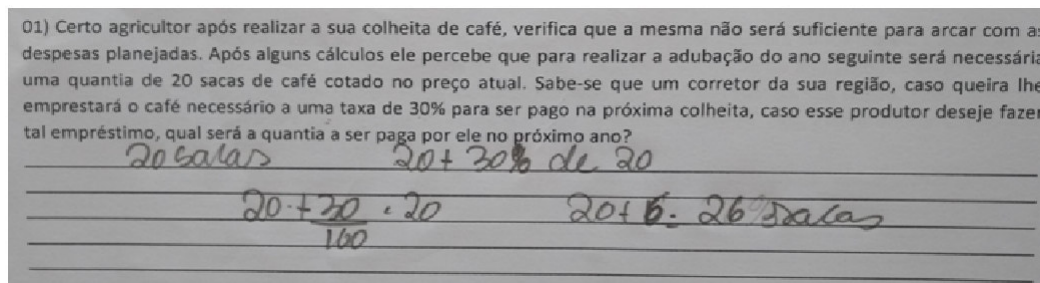 01) Certo agricultor após realizar a sua colheita de café, verifica que a mesma não será suficiente para arcar com as
despesas planejadas. Após alguns cálculos ele percebe que para realizar a adubação do ano seguinte será necessária
uma quantia de 20 sacas de café cotado no preço atual. Sabe-se que um corretor da sua região, caso queira lhe
emprestará o café necessário a uma taxa de 30% para ser pago na próxima colheita, caso esse produtor deseje fazer
tal empréstimo, qual será a quantia a ser paga por ele no próximo ano?
20 sacas 20 + 30% de 20
20 + 30/100 . 20 20 + 6 = 26 sacas